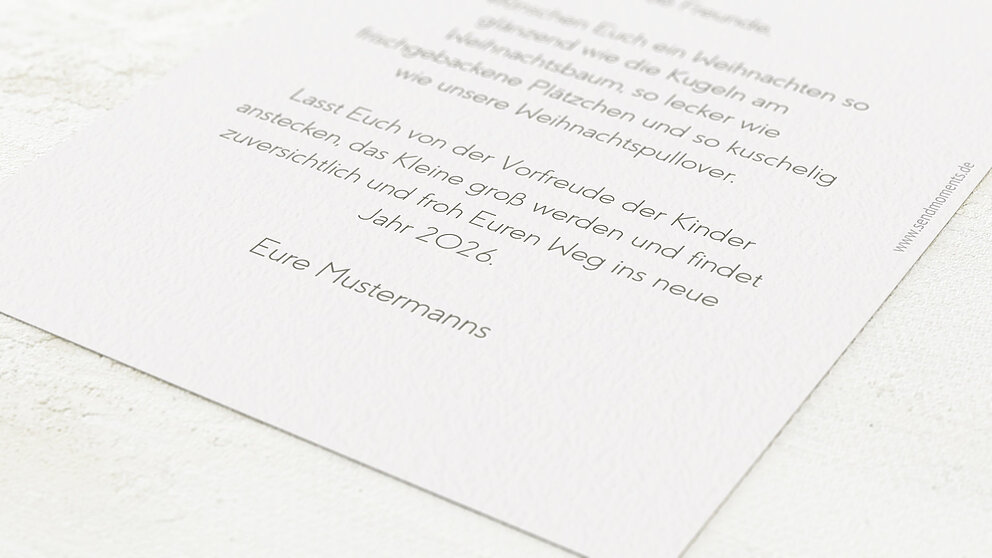 Freunde,
wünschen Euch ein Weihnachten so
glänzend wie die Kugeln am
Weihnachtsbaum, so lecker wie
frischgebackene Plätzchen und so kuschelig
wie unsere Weihnachtspullover.
Lasst Euch von der Vorfreude der Kinder
anstecken, das Kleine groß werden und findet
zuversichtlich und froh Euren Weg ins neue
Jahr 2026.
Eure Mustermanns
www.sendmoments.de